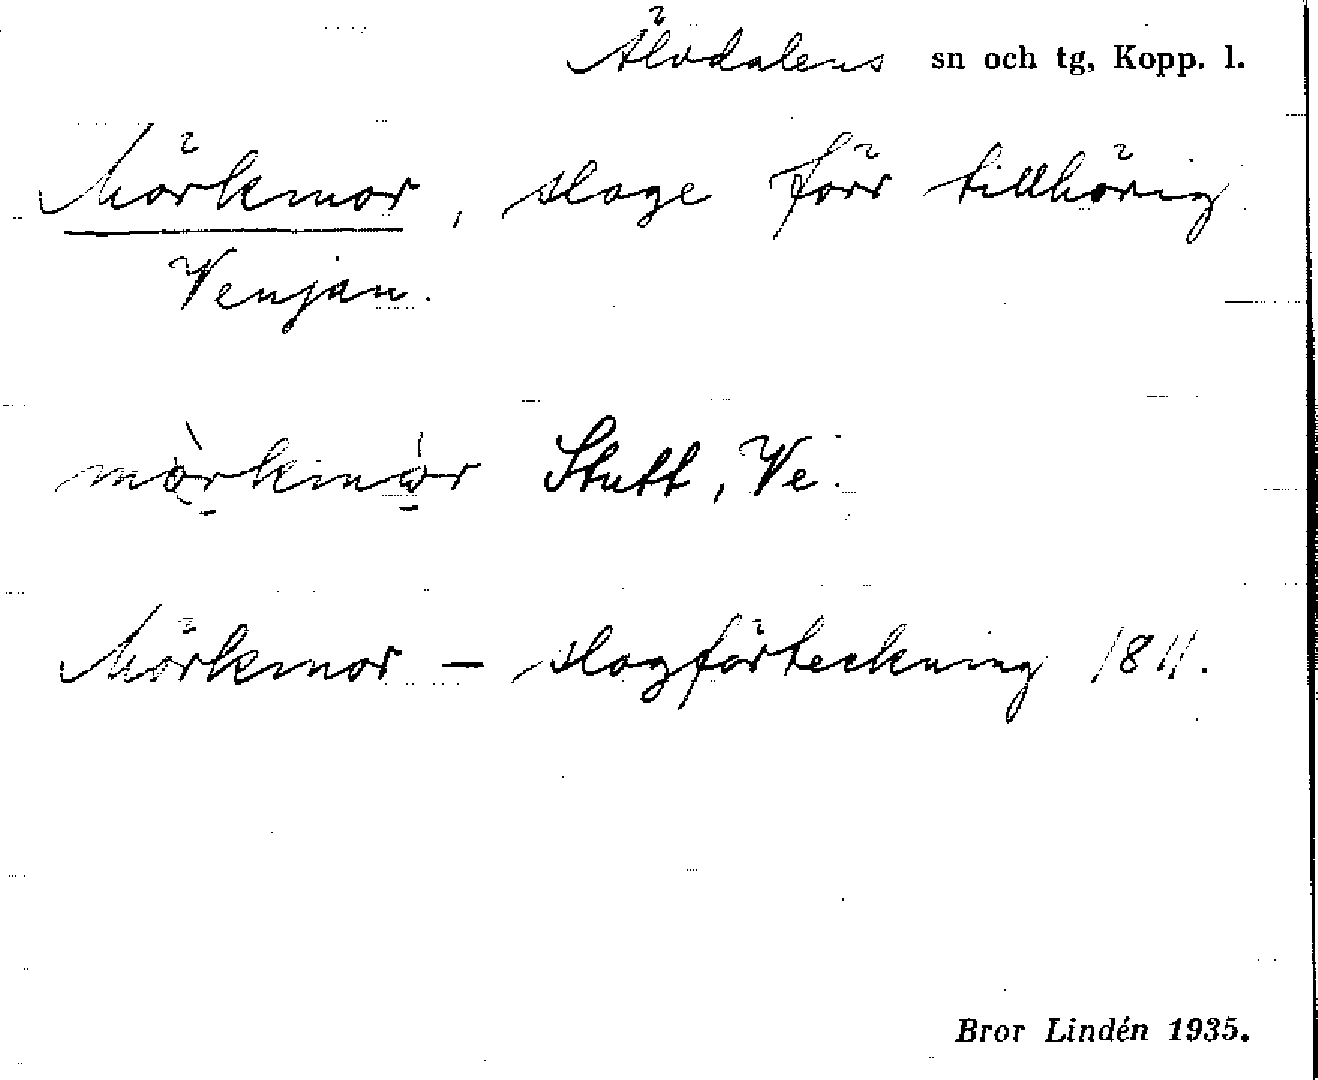 Älvdalens sn och tg, Kopp. l.
Mörkmor, sloge förr tillhörig
Venjan.
mò̠rkmó̠r Stutt, Ve.
Mörkmor – slogförteckning 1811.
Bror Lindén 1935.